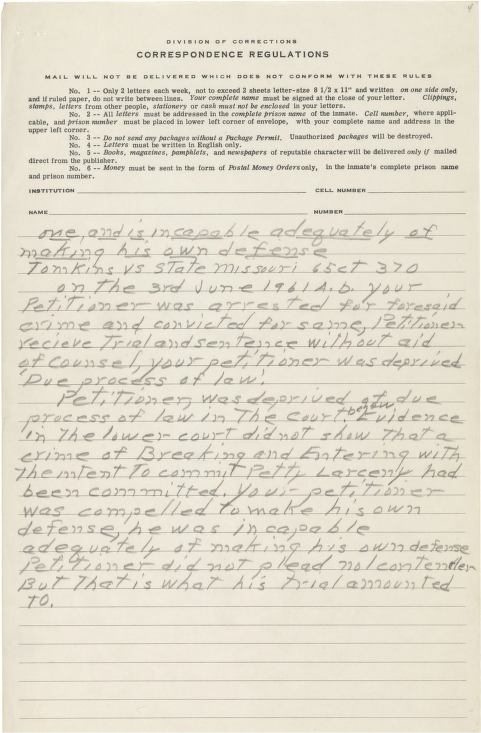 4
DIVISION OF CORRECTIONS
CORRESPONDENCE REGULATIONS
MAIL WILL NOT BE DELIVERED WHICH DOES NOT CONFORM WITH THESE RULES
No. 1 -- Only 2 letters each week, not to exceed 2 sheets letter-size 8 1/2 x 11" and written on one side only,
and if ruled paper, do not write between lines. Your complete name must be signed at the close of your letter. Clippings,
stamps, letters from other people, stationery or cash must not be enclosed in your letters.
No. 2 -- All letters must be addressed in the complete prison name of the inmate. Cell number, where appli-
cable, and prison number must be placed in lower left corner of envelope, with your complete name and address in the
upper left corner.
No. 3 -- Do not send any packages without a Package Permit. Unauthorized packages will be destroyed.
No. 4 -- Letters must be written in English only.
No. 5 -- Books, magazines, pamphlets, and newspapers of reputable character will be delivered only if mailed
direct from the publisher.
No. 6 -- Money must be sent in the form of Postal Money Orders only, in the inmate's complete prison name
and prison number.
INSTITUTION CELL NUMBER
NAME NUMBER
one, and is incapable adequately of
making his own defense
Tomkins vs State Missouri 65ct 370
on the 3rd June 1961 A.D. your
Petitioner was arrested for foresaid
crime and convicted for same, Petitioner
recieve Trial and sentence without aid
of counsel, your petitioner was deprived
"Due process of law."
Petitioner, was deprived of due
process of law in The court below Evidence
in The lower court did not show that a
crime of Breaking and Entering with
the intent To commit Petty Larceny had
been committed. Your petitioner
was compelled to make his own
defense, he was incapable
adequately of making his own defense
Petitioner did not plead nol contender
But That is what his trial amounted
to.